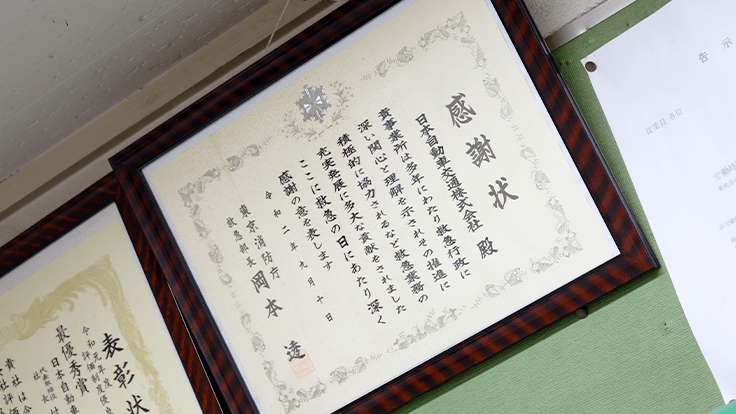 感謝状
日本自動車交通株式会社 殿
貴事業所は多年にわたり救急行政に
深い関心と理解を示されその推進に
積極的に協力されるなど救急業務の
充実発展に多大な貢献をされました
ここに救急の日にあたり深く
感謝の意を表します
令和二年九月十日
東京消防庁
救急部長 岡本 透
表彰状
令和元年度
最優秀賞
日本自動車
告示
従業員各位